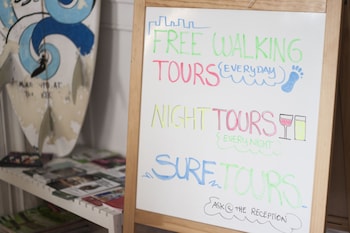 FREE WALKING
TOURS (EVERYDAY)
NIGHT TOURS
EVERY NIGHT
SURF TOURS
ASK @ THE RECEPTION